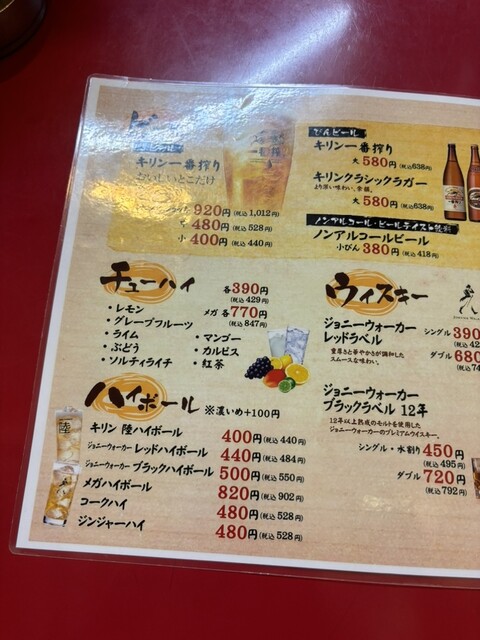 キリン一番搾り
おいしいとこだけ
920円(税込 1,012円)
480円(税込 528円)
小 400円(税込 440円)
びんビール
キリン一番搾り
大 580円(税込638円)
キリンクラシックラガー
より深い味わい、余韻。
大 580円(税込638円)
ノンアルコール・ビールテイスト飲料
ノンアルコールビール
小びん 380円(税込 418円)
チューハイ
各390円
(税込 429円)
メガ 各770円
(税込 847円)
・レモン
・グレープフルーツ
・ライム
・ぶどう
・ソルティライチ
・マンゴー
・カルピス
・紅茶
ハイボール ※濃いめ+100円
キリン 陸ハイボール 400円(税込 440円)
ジョニーウォーカー レッドハイボール 440円(税込 484円)
ジョニーウォーカー ブラックハイボール 500円(税込 550円)
メガハイボール 820円(税込 902円)
コークハイ 480円(税込 528円)
ジンジャーハイ 480円(税込 528円)
ウィスキー
ジョニーウォーカー
レッドラベル
豊厚さと華やかさが調和した
スムースな味わい。
シングル 390
ダブル 680
ジョニーウォーカー
ブラックラベル 12年
12年以上熟成のモルトを使用した
ジョニーウォーカーのプレミアムウイスキー。
シングル・水割り 450円
(税込 495円)
ダブル 720円
(税込 792円)
陸